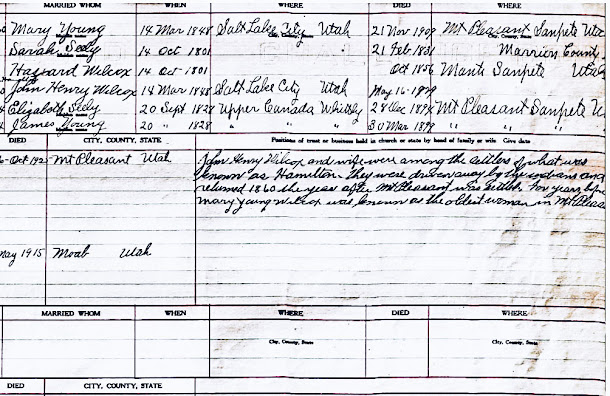 MARRIED WHOM WHEN WHERE DIED WHERE
Mary Young 14 Mar 1848 Salt Lake City Utah 21 Nov 1909 Mt Pleasant Sanpete
Sarah Seely 14 Oct 1801 21 Feb Marrion County
Hazard Wilcox 14 Oct 1801 Oct 1856 Manti Sanpete
John Henry Wilcox 14 Mar 1848 Salt Lake City Utah May 16
Elizabeth Seely 20 Sept 1828 Upper Canada Whitby 28 Dec Mt Pleasant Sanpete
James Young 20 " 1828 " " " 30 Mar
DIED CITY, COUNTY, STATE Positions of trust or business held in church or state by head of family or wife Give date
Oct 192 Mt Pleasant Utah John Henry Wilcox and wife were among the settlers of what was
known as Hamilton. They were driven away by the indians and
returned 1860 the year after Mt Pleasant was settled. For years
Mary Young Wilcox was known as the oldest woman in Mt Pleas
May 1915 Moab Utah
MARRIED WHOM WHEN WHERE DIED WHERE
City, County, State City, County, State
DIED CITY, COUNTY, STATE